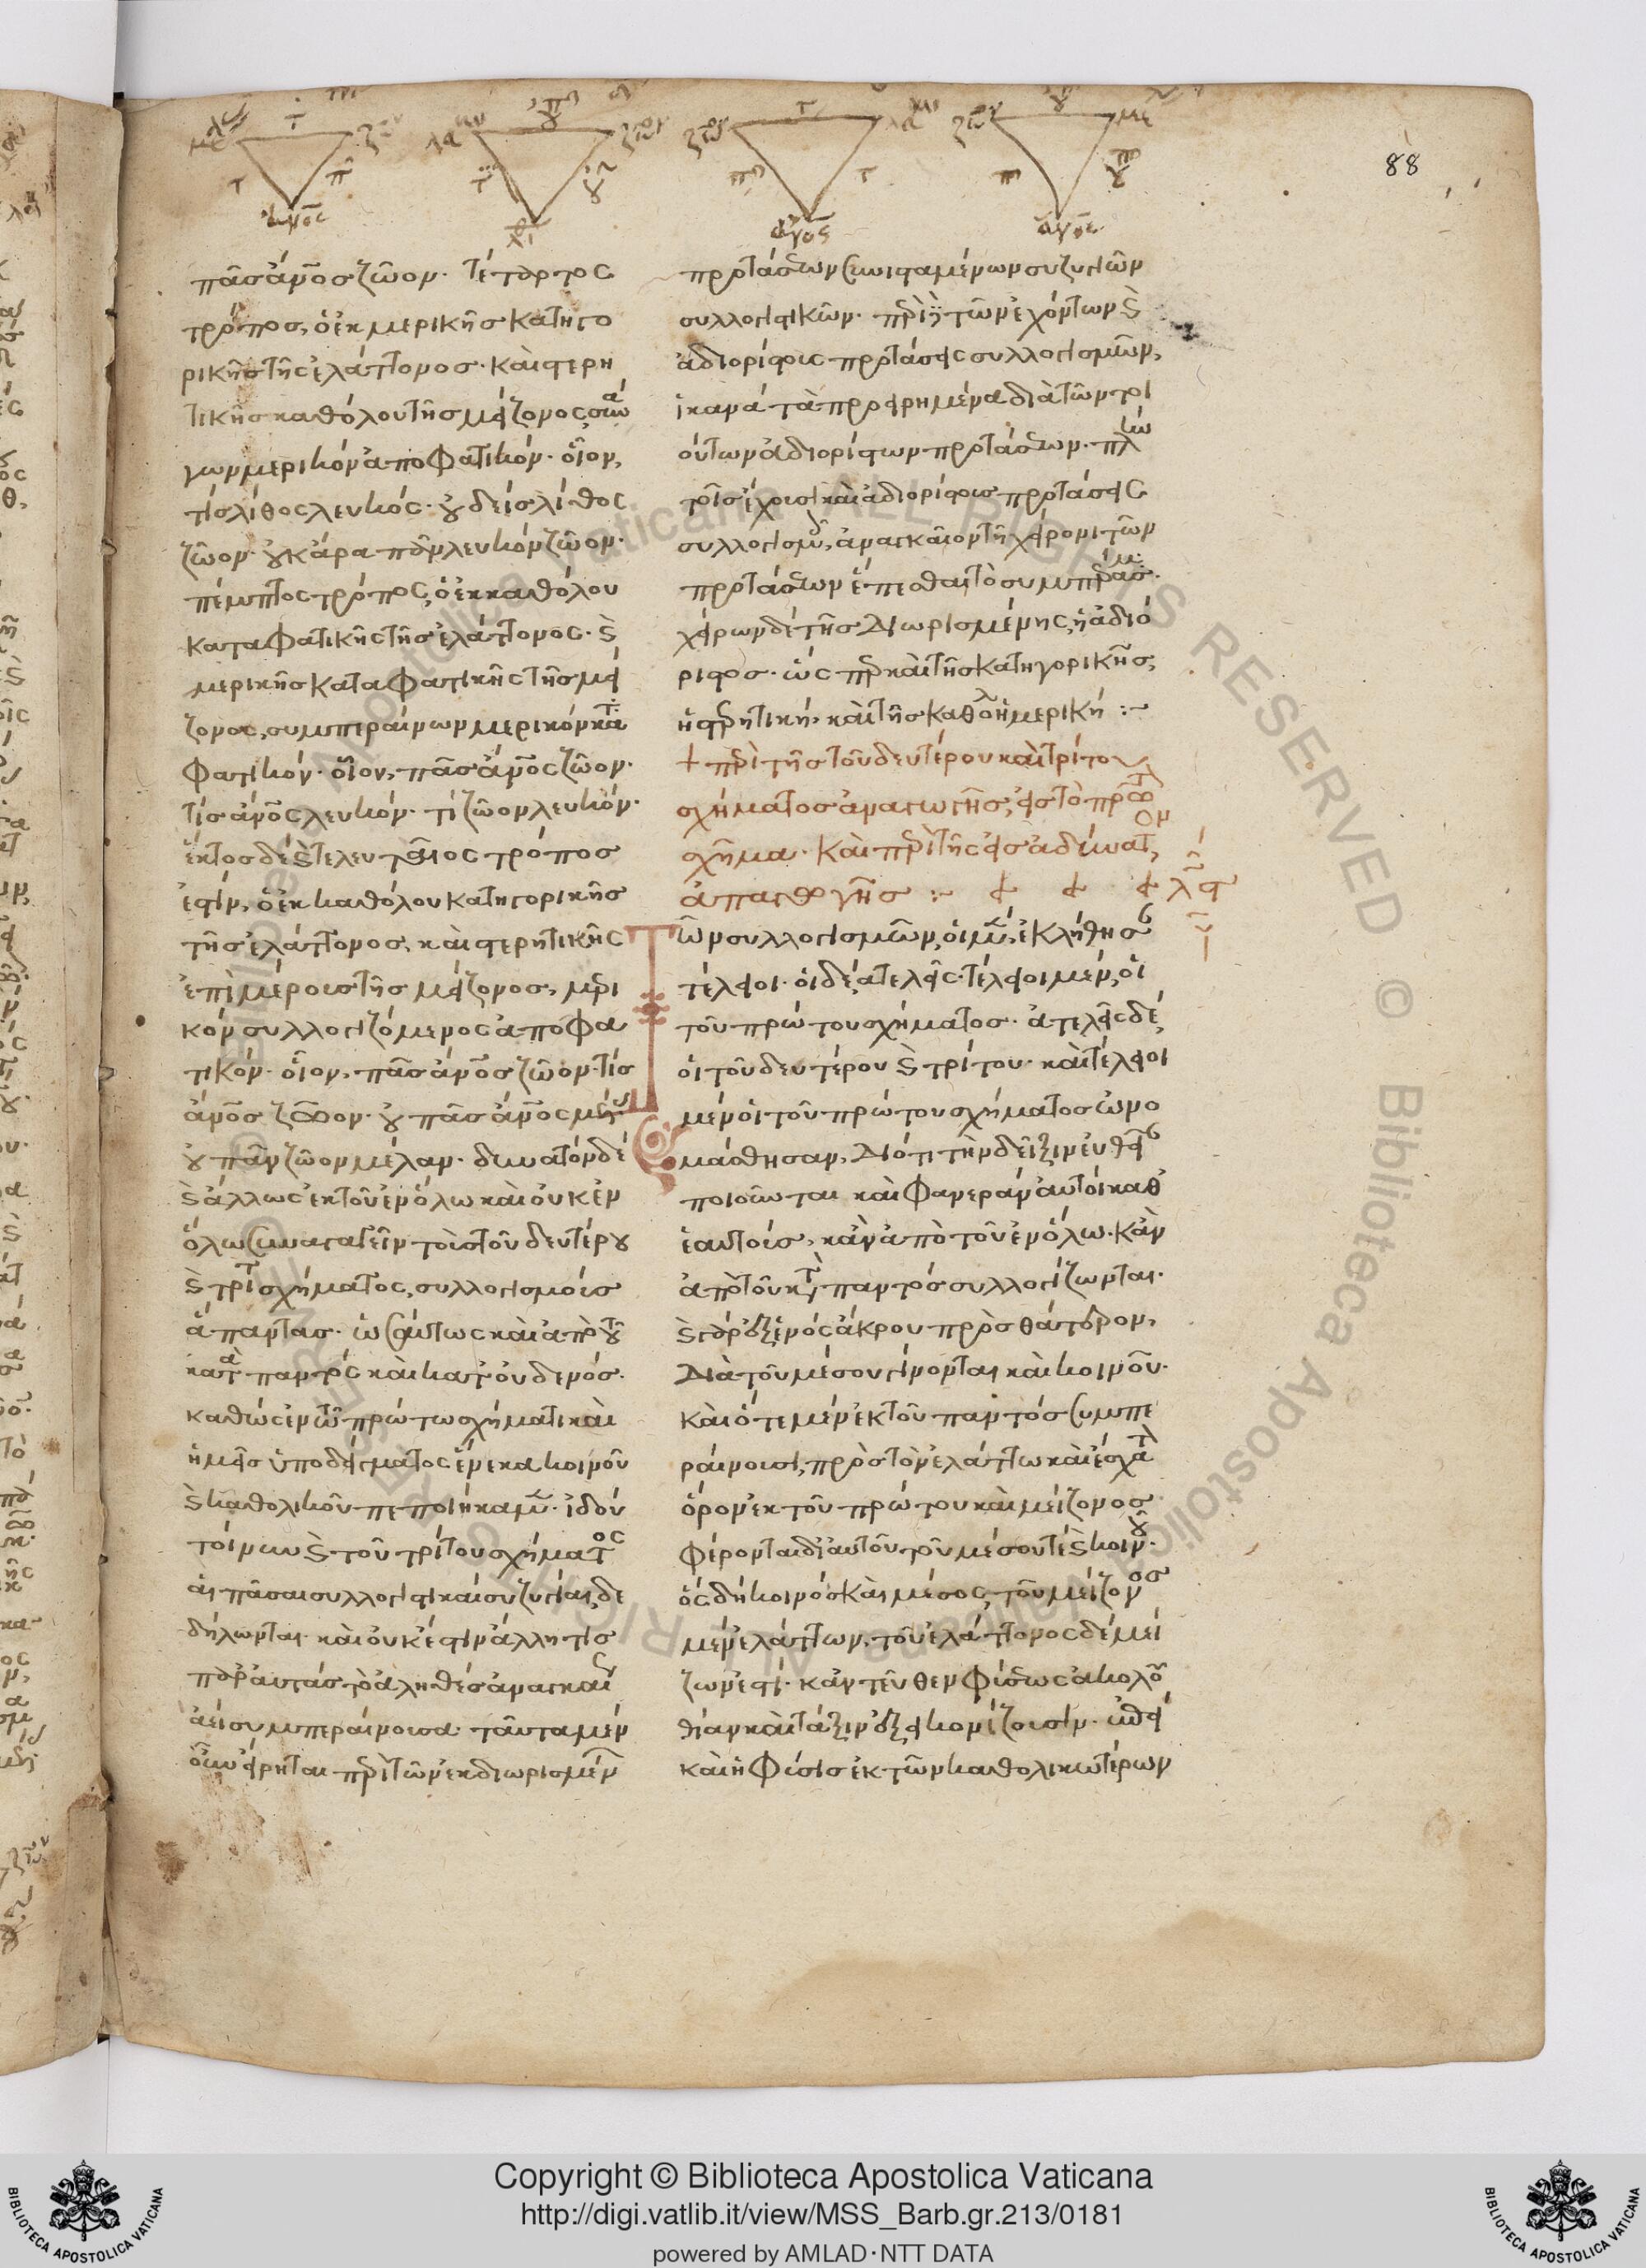 88
πᾶς ἄνος ζῶον· τέταρτος
τρόπος, ὁ ἐκ μερικῆς κατηγο
ρικῆς τῆς ἐλάττονος· καὶ στερη
τικῆς καθόλου τῆς μείζονος, συνά
γων μερικὸν ἀποφατικόν· οἷον,
τὶς λίθος λευκός· οὐδεὶς λίθος
ζῶον· οὐκ ἄρα πᾶν λευκὸν ζῶον·
πέμπτος τρόπος, ὁ ἐκ καθόλου
καταφατικῆς τῆς ἐλάττονος· καὶ
μερικῆς καταφατικῆς τῆς μεί
ζονος, συμπεραίνων μερικὸν κατα
φατικόν· οἷον, πᾶς ἄνος ζῶον·
τὶς ἄνος λευκόν· τὶ ζῶον λευκόν·
ἕκτος δὲ καὶ τελευταῖος τρόπος
ἐστὶν, ὁ ἐκ καθόλου κατηγορικῆς
τῆς ἐλάττονος, καὶ στερητικῆς
ἐπὶ μέρους τῆς μείζονος, μερι
κὸν συλλογιζόμενος ἀποφα
τικόν· οἷον, πᾶς ἄνος ζῶον· τὶς
ἄνος οὐ πᾶς ἄνος μέλας
οὐ πᾶν ζῶον μέλαν· δυνατὸν δὲ
καὶ ἄλλως ἐκ τοῦ ἐν ὅλω καὶ οὐκ ἐν
ὅλω συναγαγεῖν τοὺς τοῦ δευτέρου
καὶ τρίτου σχήματος, συλλογισμοὺς
ἅπαντας· ὡσαύτως καὶ ἀπὸ τοῦ
κατὰ παντὸς καὶ κατ' οὐδενός·
καθὼς ἐν τῶ πρώτω σχήματι καὶ
ἡμεῖς ὑποδείγματος ἕνεκα κοινοῦ
καὶ καθολικοῦ πεποιήκαμεν· ἰδοὺ
τοίνυν καὶ τοῦ τρίτου σχήματος
αἱ πᾶσαι συλλογιστικαὶ συζυγίαι, δε
δήλωνται· καὶ οὐκ ἔστιν ἄλλη τις
παρ' αὐτὰς τὸ ἀληθὲς ἀναγκαίως
ἀεὶ συμπεραίνουσα· ταῦτα μὲν
οὖν εἴρηται περὶ τῶν ἐκ διωρισμένων
προτάσεων συνισταμένων συζυγιῶν
συλλογιστικῶν· περὶ δὲ τῶν ἐχόντων καὶ
ἀδιορίστους προτάσεις συλλογισμῶν,
ἱκανὰ τὰ προειρημένα διὰ τῶν τοι
ούτων ἀδιορίστων προτάσεων· πλὴν
τοῖς ἔχουσι καὶ ἀδιορίστους προτάσεις
συλλογισμοῖς, ἀναγκαῖον τῆ χείρονι τῶν
προτάσεων ἕπεσθαι τὸ συμπέρασμα·
χείρων δὲ τῆς διωρισμένης, ἡ ἀδιό
ριστος· ὡς περ καὶ τῆς κατηγορικῆς,
ἡ στερητική· καὶ τῆς καθόλου ἡ μερική :~
+ περὶ τῆς τοῦ δευτέρου καὶ τρίτου
σχήματος ἀναγωγῆς, εἰς τὸ πρῶτον
σχῆμα· καὶ περὶ τῆς εἰς ἀδύνατον
ἀπαγωγῆς :~
Τῶν συλλογισμῶν, οἱ μὲν, ἐκλήθησαν
τέλειοι· οἱ δὲ, ἀτελεῖς· τέλειοι μὲν, οἱ
τοῦ πρώτου σχήματος· ἀτελεῖς δὲ,
οἱ τοῦ δευτέρου καὶ τρίτου· καὶ τέλειοι
μὲν οἱ τοῦ πρώτου σχήματος ὠνο
μάσθησαν, διότι τὴν δεῖξιν εὐθεῖαν
ποιοῦνται καὶ φανερὰν αὐτοὶ καθ'
ἑαυτοὺς, κἂν ἀπὸ τοῦ ἐν ὅλω· κἂν
ἀπὸ τοῦ κατὰ παντὸς συλλογίζωνται·
καὶ γὰρ ἐξ ἑνὸς ἄκρου πρὸς θάτερον,
διὰ τοῦ μέσου γίνονται καὶ κοινοῦ·
καὶ ὅτε μὲν ἐκ τοῦ παντὸς συμπε
ραίνουσι, πρὸς τὸν ἐλάττω καὶ ἔσχατον
ὅρον ἐκ τοῦ πρώτου καὶ μείζονος
φέρονται δι' αὐτοῦ τοῦ μέσου τὲ καὶ κοινοῦ·
ὃς δὴ κοινὸς καὶ μέσος, τοῦ μείζονος
μὲν ἐλάττων, τοῦ ἐλάττονος δὲ μεί
ζων ἐστί· κἀντεῦθεν φύσεως ἀκολου
θίαν καὶ τάξιν ἕξει κομίζουσιν·
καὶ ἡ φύσις ἐκ τῶν καθολικωτέρων
Copyright © Biblioteca Apostolica Vaticana
http://digi.vatlib.it/view/MSS_Barb.gr.213/0181
powered by AMLAD·NTT DATA
BIBLIOTECA APOSTOLICA VATICANA
BIBLIOTECA APOSTOLICA VATICANA